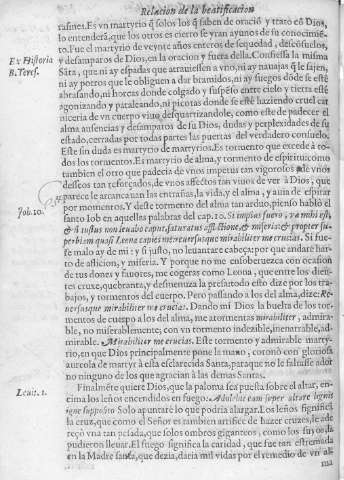 Relacion de la beatificacion
rafines. Es vn martyrio q̃ solos los q̃ saben de oraciõ y trato cõ Dios,
lo entenderá, que los otros es cierto se yran ayunos de su conocimiẽ-
to. Fue el martyrio de veynte años enteros de sequedad, descõsuelos,
y desamparos de Dios, en la oracion y fuera della. Confiessa la misma
Ex Historia
B. Teres.
Sãta, que ni ay espadas que atrauiessen a vno, ni ay nauajas q̃ le sajen,
ni ay potros que le obliguen a dar bramidos, ni ay fuegos dõde se estè
abrasando, ni horcas donde colgado y suspẽso entre cielo y tierra estè
agonizando y pataleando, ni picotas donde se estè haziendo cruel car
niceria de vn cuerpo viuo desquartizandole, como este de padecer el
alma ausencias y desamparos de su Dios, dudas y perplexidades de su
estado, cerradas por todas partes las puertas del verdadero consuelo.
Este sin duda es martyrio de martyrios. Es tormento que excede à to-
dos los tormentos. Es martyrio de alma, y tormento de espiritu: como
tambien el otro que padecia de vnos impetus tan vigorosos de vnos
desseos tan reforçados, de vnos affectos tan viuos de ver à Dios, que
parece le arrancauan las entrañas, la vida y el alma, y auia de espirar
por momentos. Y deste tormento del alma tan arduo, pienso hablò el
Job. 10.
santo Iob en aquellas palabras del cap. 10. Si impius fuero, væ mihi est,
& si iustus non leuabo caput, saturatus afflictione, & miseria: & propter su-
perbiam quasi Leæna capies me, reuersusque mirabiliter me crucias. Si fue-
re malo ay de mi: y si justo, no leuantarè cabeça: por que andarè har-
to de afliccion, y miseria. Y porque no me ensoberuezca con ocasion
de tus dones y fauores, me cogeras como Leona, que entre los dien-
tes cruxe, quebranta, y desmenuza la presa: todo esto dize por los tra-
bajos, y tormentos del cuerpo. Pero passando a los del alma, dize: Re-
uersusque mirabiliter me crucias. Dando mi Dios la buelta de los tor-
mentos de cuerpo a los del alma, me atormentas mirabiliter, admira-
ble, no miserablemente; con vn tormento indezible, inenarrable, ad-
mirable. Mirabiliter me crucias. Este tormento y admirable marty-
rio, en que Dios principalmente pone la mano, coronò con gloriosa
aureola de martyr à esta esclarecida Santa, paraque no le faltasse ador
no ninguno de los que agracian à las demas Santas.
Leuit. 1.
Finalmẽte quiere Dios, que la paloma sea puesta sobre el altar, en-
cima los leños encendidos en fuego. Adolebit eam super altare lignis
igne supposito. Solo apuntarè lo que podria alargar. Los leños significã
la cruz, que como el Señor es tambien artifice de hazer cruzes, le ade
reçò vna tan pesada, que solos ombros giganteos, como los suyos, la
pudieron lleuar. El fuego significa la caridad, que fue tan estremada
en la Madre santa, que dezia, daria mil vidas por el remedio de vn al
ma